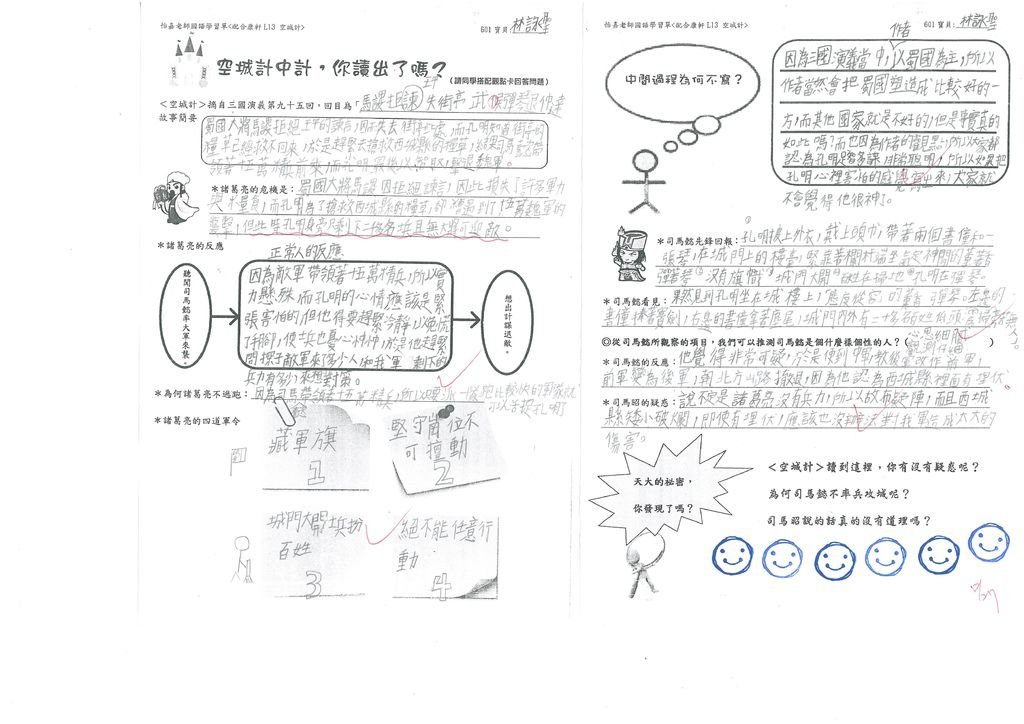 怡嘉老師國語學習單<配合康軒 L13 空城計>
601 寶貝:林詠聖
空城計中計,你讀出了嗎?
(請同學搭配觀點卡回答問題)
<空城計>摘自三國演義第九十五回,回目為「馬謖拒諫失街亭 武侯彈琴退仲達
故事簡要
蜀國大將馬謖拒絕王平的諫言,因而失去街亭
領著十五萬精兵前來
*諸葛亮的危機是:蜀國大將馬謖因拒絕諫言,因此損失了許多軍力
與大量食,而孔明為了搶救西城縣的糧草,卻遇到了十五萬魏軍的
襲擊,但此時孔明身旁只剩下二千多名兵且無大將可迎敵。
*諸葛亮的反應
正常人的反應
聽聞司馬懿率大軍來襲。
因為敵軍帶領著十五萬精兵,所以實
力懸殊而孔明的心情應該是緊
張害怕的,但他得要趕緊冷靜以免慌
了手腳,使士兵也憂心忡忡,於是他趕緊
問探子敵軍來了多少人和我軍剩下的
兵力有多少來想對策。
想出計謀退敵。
*為何諸葛亮不逃跑:因為司馬帶領著十五萬精兵,所以
可以活捉孔明了
*諸葛亮的四道軍令
藏軍旗
1
堅守崗位不
可擅動
2
城門大開士兵扮
百姓
3
絕不能任意行
動
4
怡嘉老師國語學習單<配合康軒 L13 空城計>
601 寶貝:林詠聖
中間過程為何不寫?
作者
因為三國演義當中,以蜀國為主,所以
作者當然會把蜀國塑造成比較好的一
方,而其他國家就是不好的,但是事實真的
如此嗎?而也因為作者的觀點,所以大家都
認為孔明足智多謀、非常聰明,所以如果把
孔明心裡害怕的感覺寫出來,大家就
不會覺得他很神了。
*司馬懿先鋒回報:孔明披上外衣,戴上頭巾,帶著兩個書僮和一
張琴,在城門上的樓臺,緊靠著欄杆端坐
彈著琴。沒有旗幟 城門大開 孔明在彈琴。
*司馬懿看見:果然見到孔明坐在城樓上,態度從容的
書僮捧著寶劍,右邊的書僮拿著麈尾,城門內外有二十多名百姓低頭
◎從司馬懿所觀察的項目,我們可以推測司馬懿是個什麼樣個性的人?(心思細膩、觀察仔細)
*司馬懿的反應:他覺得非常可疑,於是便到中軍教後軍改作前軍,
前軍變為後軍,朝北方山路撤退,因為他認為西城縣裡面有埋伏
*司馬昭的疑惑:說不定是諸葛亮沒有兵力,所以故布疑陣,而且西城
縣矮小破爛,即使有埋伏,應該也沒辦法對我軍造成太大的
傷害。
天大的秘密,
你發現了嗎?
<空城計>讀到這裡,你有沒有疑惑呢?
為何司馬懿不率兵攻城呢?
司馬昭說的話真的沒有道理嗎?